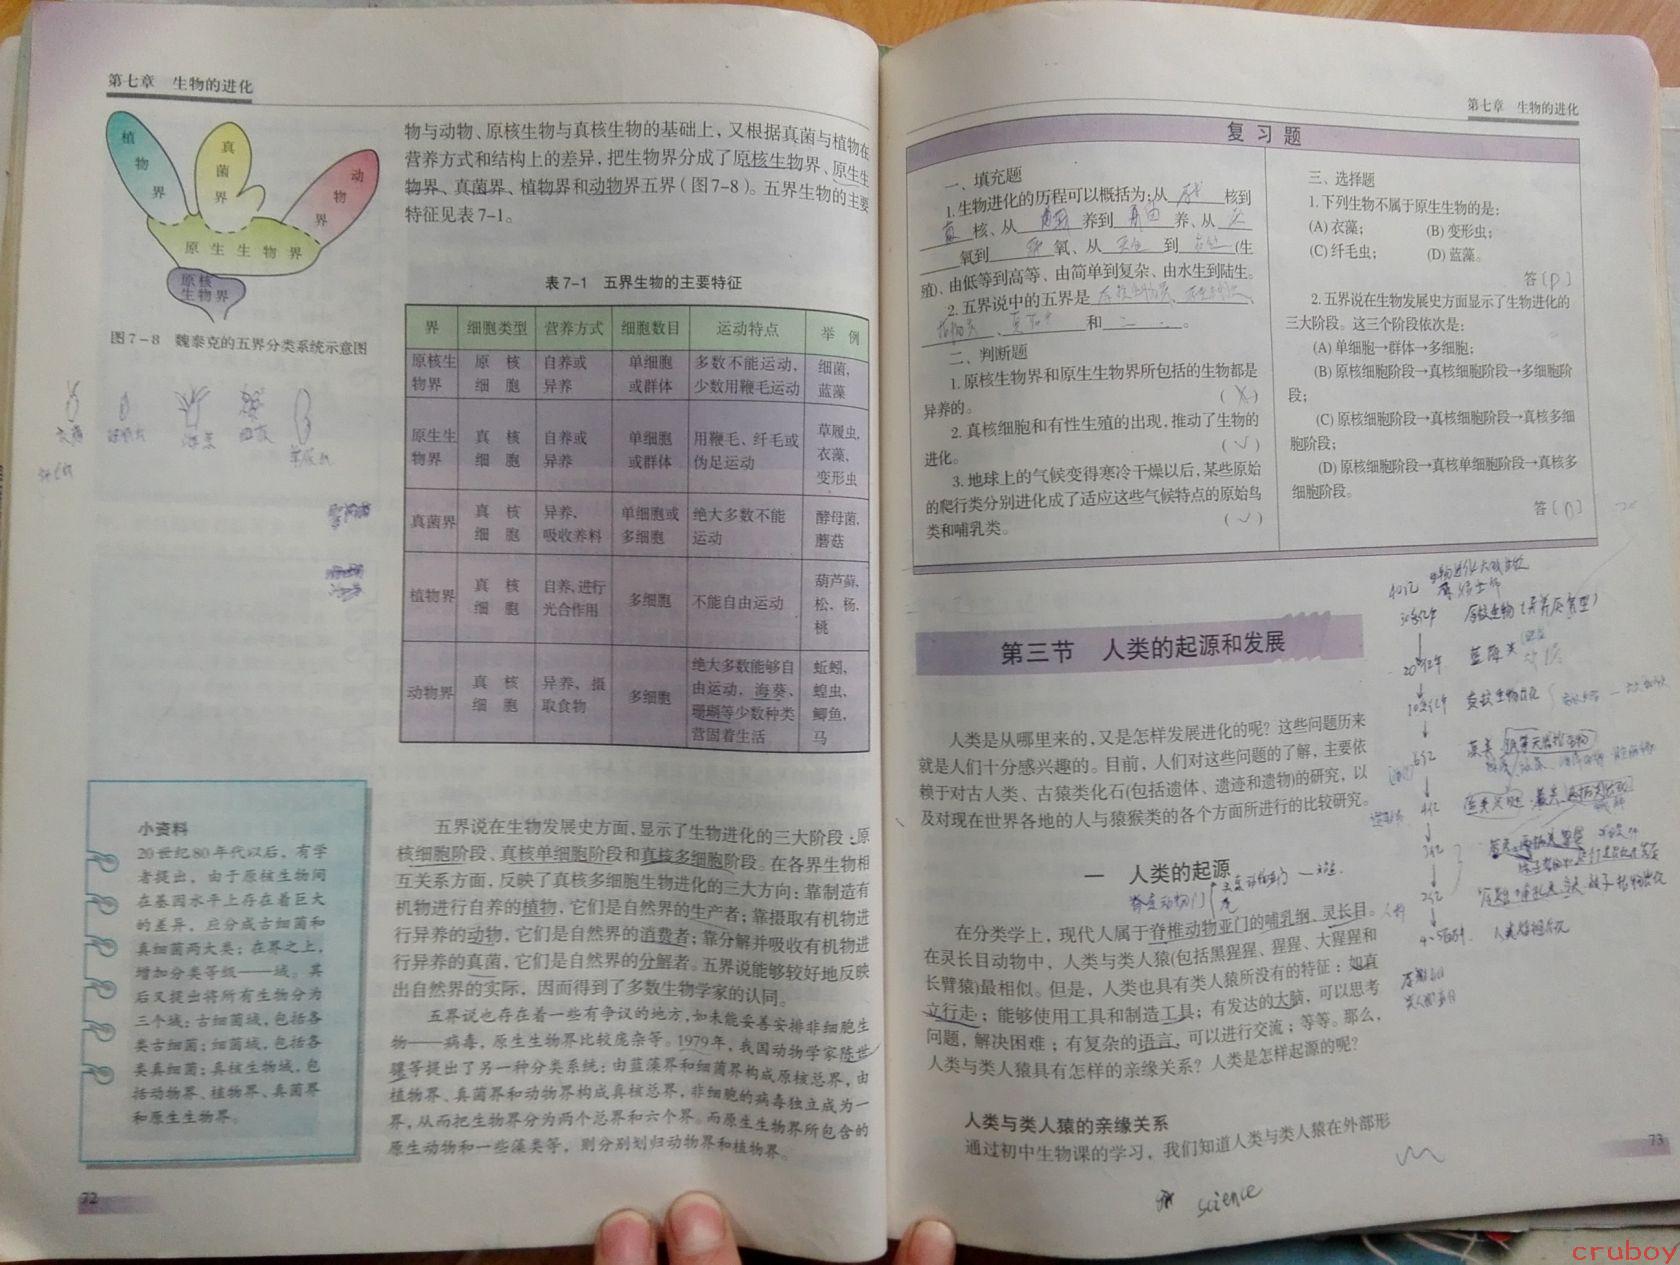 第七章 生物的进化
植物界
真菌界
动物界
原生生物界
原核
生物界
图7-8 魏泰克的五界分类系统示意图
物与动物、原核生物与真核生物的基础上，又根据真菌与植物在
营养方式和结构上的差异，把生物界分成了原核生物界、原生生
物界、真菌界、植物界和动物界五界（图7-8）。五界生物的主要
特征见表7-1。
表7-1 五界生物的主要特征
界 细胞类型 营养方式 细胞数目 运动特点 举例
原核生 原核 自养或 单细胞 多数不能运动， 细菌，
物界 细胞 异养 或群体 少数用鞭毛运动 蓝藻
原生生 真核 自养或 单细胞 用鞭毛、纤毛或 草履虫，
物界 细胞 异养 或群体 伪足运动 衣藻、
变形虫
真菌界 真核 异养、 单细胞或 绝大多数不能 酵母菌，
细胞 吸收养料 多细胞 运动 蘑菇
植物界 真核 自养，进行 多细胞 不能自由运动 葫芦藓，
细胞 光合作用 松、杨、
桃
动物界 真核 异养、摄 多细胞 绝大多数能够自 蚯蚓，
细胞 取食物 由运动，海葵、 蝗虫，
珊瑚等少数种类 鲫鱼，
营固着生活 马
小资料
20世纪80年代以后，有学
者提出，由于原核生物间
在基因水平上存在着巨大
的差异，应分成古细菌和
真细菌两大类；在界之上，
增加分类等级——域。其
后又提出将所有生物分为
三个域：古细菌域，包括各
类古细菌；细菌域，包括各
类真细菌；真核生物域，包
括动物界、植物界、真菌界
和原生生物界。
五界说在生物发展史方面，显示了生物进化的三大阶段：原
核细胞阶段、真核单细胞阶段和真核多细胞阶段。在各界生物相
互关系方面，反映了真核多细胞生物进化的三大方向：靠制造有
机物进行自养的植物，它们是自然界的生产者；靠摄取有机物进
行异养的动物，它们是自然界的消费者；靠分解并吸收有机物进
行异养的真菌，它们是自然界的分解者。五界说能够较好地反映
出自然界的实际，因而得到了多数生物学家的认同。
五界说也存在着一些有争议的地方，如未能妥善安排非细胞生
物——病毒，原生生物界比较庞杂等。1979年，我国动物学家陈世
骧等提出了另一种分类系统：由蓝藻界和细菌界构成原核总界，由
植物界、真菌界和动物界构成真核总界，非细胞的病毒独立成为一
界，从而把生物界分为两个总界和六个界。而原生生物界所包含的
原生动物和一些藻类等，则分别划归动物界和植物界。
72
第七章 生物的进化
复习题
一、填充题
1.生物进化的历程可以概括为：从 原 核到
真 核、从 养到 养、从
氧到 氧、从 到 (生
殖)、由低等到高等、由简单到复杂、由水生到陆生。
2.五界说中的五界是
和 。
二、判断题
1.原核生物界和原生生物界所包括的生物都是
异养的。 (×)
2.真核细胞和有性生殖的出现，推动了生物的
进化。 (✓)
3.地球上的气候变得寒冷干燥以后，某些原始
的爬行类分别进化成了适应这些气候特点的原始鸟
类和哺乳类。 (✓)
三、选择题
1.下列生物不属于原生生物的是：
(A)衣藻； (B)变形虫；
(C)纤毛虫； (D)蓝藻。
答〔D〕
2.五界说在生物发展史方面显示了生物进化的
三大阶段。这三个阶段依次是：
(A)单细胞→群体→多细胞；
(B)原核细胞阶段→真核细胞阶段→多细胞阶
段；
(C)原核细胞阶段→真核细胞阶段→真核多细
胞阶段；
(D)原核细胞阶段→真核单细胞阶段→真核多
细胞阶段。
答〔D〕
第三节 人类的起源和发展
人类是从哪里来的，又是怎样发展进化的呢？这些问题历来
就是人们十分感兴趣的。目前，人们对这些问题的了解，主要依
赖于对古人类、古猿类化石(包括遗体、遗迹和遗物)的研究，以
及对现在世界各地的人与猿猴类的各个方面所进行的比较研究。
一 人类的起源
在分类学上，现代人属于脊椎动物亚门的哺乳纲、灵长目。
在灵长目动物中，人类与类人猿(包括黑猩猩、猩猩、大猩猩和
长臂猿)最相似。但是，人类也具有类人猿所没有的特征：如直
立行走；能够使用工具和制造工具；有发达的大脑，可以思考
问题，解决困难；有复杂的语言，可以进行交流；等等。那么，
人类与类人猿具有怎样的亲缘关系？人类是怎样起源的呢？
人类与类人猿的亲缘关系
通过初中生物课的学习，我们知道人类与类人猿在外部形
science
73
cruboy